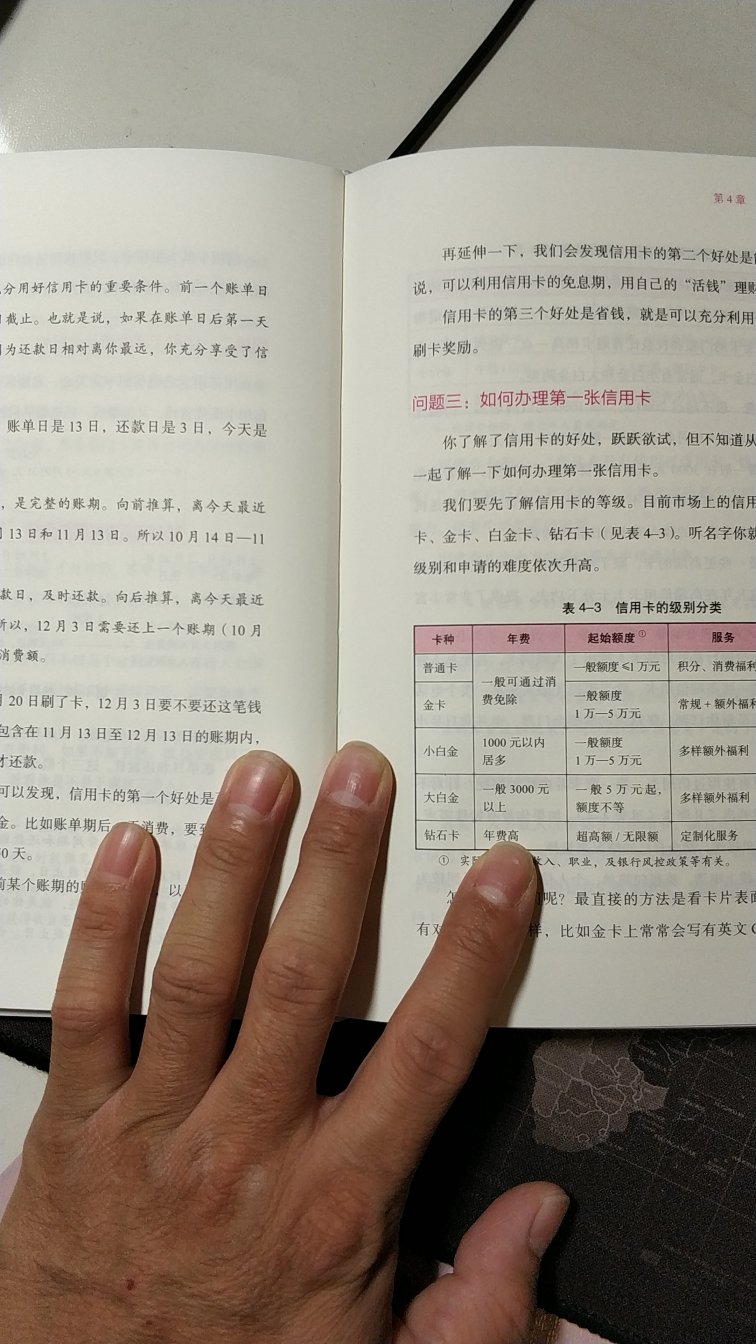 分用好信用卡的重要条件。前一个账单日
截止。也就是说，如果在账单日后第一天
为还款日相对离你最远，你充分享受了信
账单日是 13 日，还款日是 3 日，今天是
，是完整的账期。向前推算，离今天最近
13 日和 11 月 13 日。所以 10 月 14 日—11
款日，及时还款。向后推算，离今天最近
所以，12 月 3 日需要还上一个账期（10 月
消费额。
月 20 日刷了卡，12 月 3 日要不要还这笔钱
包含在 11 月 13 日至 12 月 13 日的账期内，
才还款。
可以发现，信用卡的第一个好处是
金。比如账单期后 消费，要
0 天。
前某个账期的 ，以
第 4 章
再延伸一下，我们会发现信用卡的第二个好处是
说，可以利用信用卡的免息期，用自己的“活钱”理财
信用卡的第三个好处是省钱，就是可以充分利用
刷卡奖励。
问题三：如何办理第一张信用卡
你了解了信用卡的好处，跃跃欲试，但不知道从
一起了解一下如何办理第一张信用卡。
我们要先了解信用卡的等级。目前市场上的信用
卡、金卡、白金卡、钻石卡（见表 4–3）。听名字你就
级别和申请的难度依次升高。
表 4–3 信用卡的级别分类
卡种 年费 起始额度① 服务
普通卡 一般可通过消费免除 一般额度 ≤1 万元 积分、消费福利
金卡 一般额度 1 万—5 万元 常规 + 额外福利
小白金 1000 元以内居多 一般额度 1 万—5 万元 多样额外福利
大白金 一般 3000 元以上 一般 5 万元起，额度不等 多样额外福利
钻石卡 年费高 超高额 / 无限额 定制化服务
① 实 收入、职业，及银行风控政策等有关。
怎 呢？最直接的方法是看卡片表面
有对 样，比如金卡上常常会写有英文